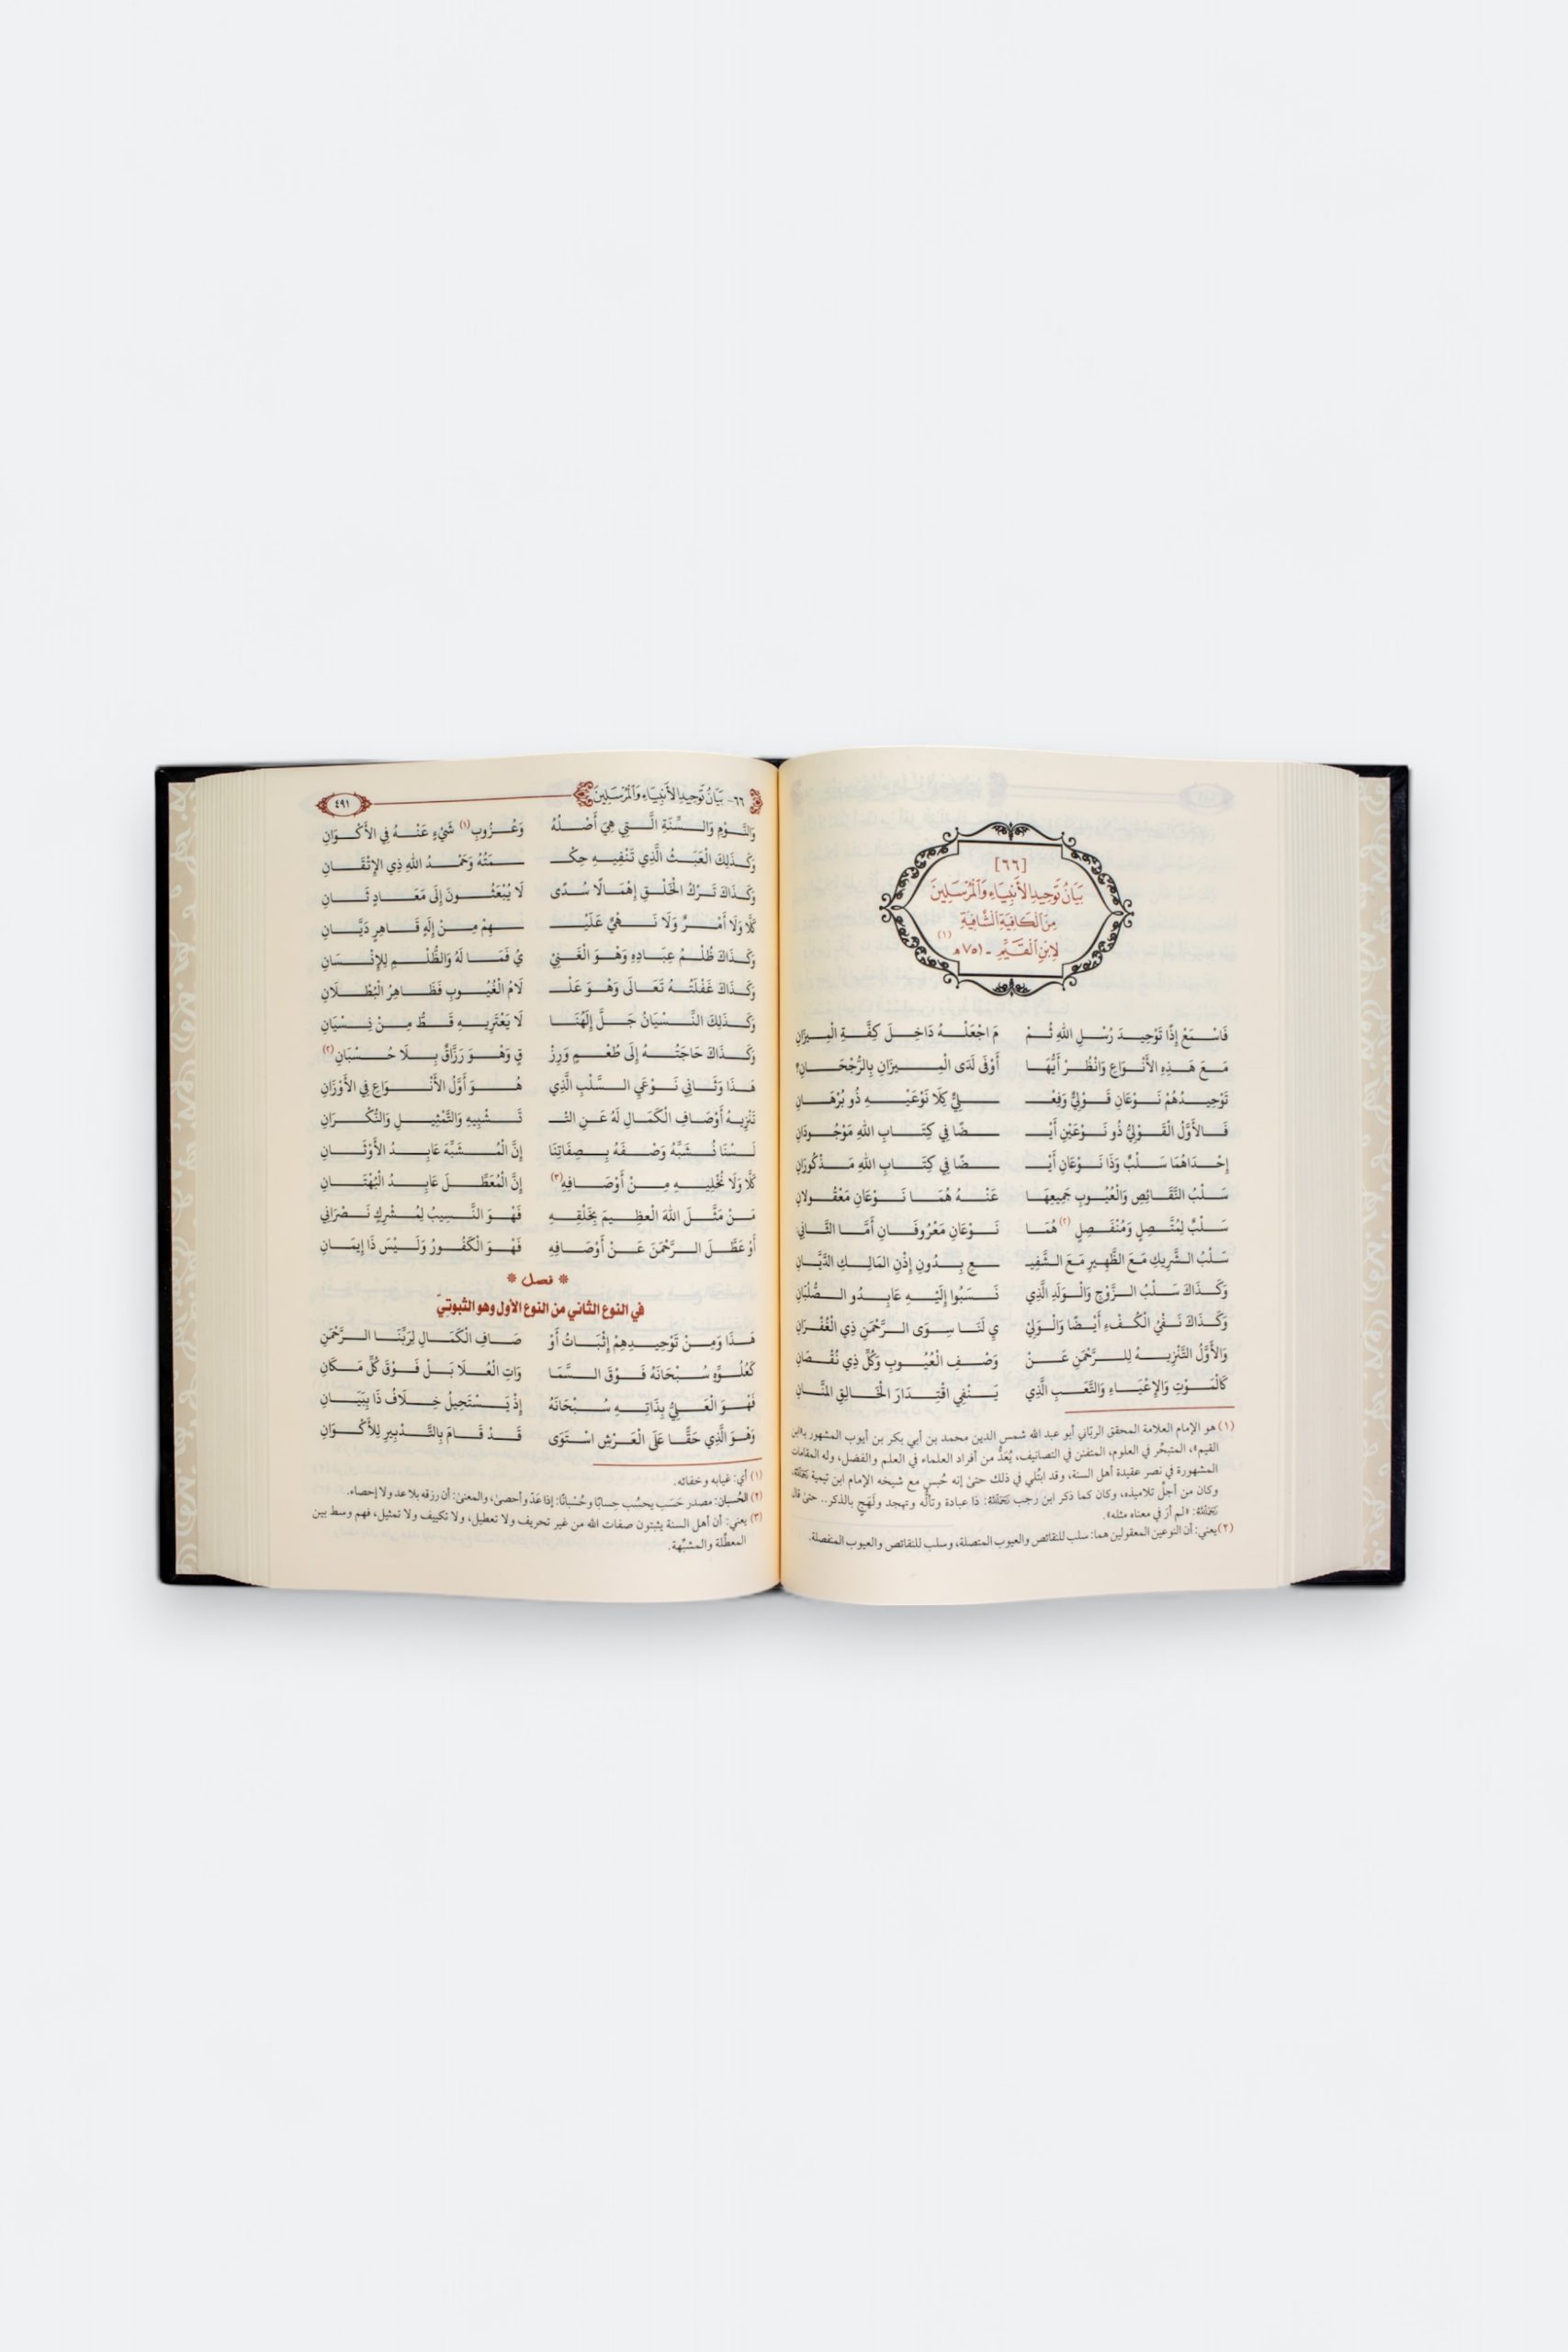 [٦٦]
بَيَانُ تَوْحِيدِ الأَنْبِيَاءِ وَالْمُرْسَلِينَ
مِنَ الْكَافِيَةِ الشَّافِيَةِ
لِابْنِ الْقَيِّمِ - ٧٥١هـ (١)
فَاسْمَعْ إِذًا تَوْحِيدَ رُسْلِ اللهِ ثُمْ مَ اجْعَلْهُ دَاخِلَ كِفَّةِ الْمِيزَانِ
مَعَ هَذِهِ الأَنْوَاعِ وَانْظُرْ أَيُّهَا أَوْفَى لَدَى الْمِيزَانِ بِالرُّجْحَانِ؟
تَوْحِيدُهُمْ نَوْعَانِ قَوْلِيٌّ وَفِعْـ ـلِيٌّ كِلَا نَوْعَيْهِ ذُو بُرْهَانِ
فَالأَوَّلُ الْقَوْلِيُّ ذُو نَوْعَيْنِ أَيْـ ـضًا فِي كِتَابِ اللهِ مَوْجُودَانِ
إِحْدَاهُمَا سَلْبٌ وَذَا نَوْعَانِ أَيْـ ـضًا فِي كِتَابِ اللهِ مَذْكُورَانِ
سَلْبُ النَّقَائِصِ وَالْعُيُوبِ جَمِيعِهَا عَنْهُ هُمَا نَوْعَانِ مَعْقُولَانِ
سَلْبٌ لِمُتَّصِلٍ وَمُنْفَصِلٍ (٢) هُمَا نَوْعَانِ مَعْرُوفَانِ أَمَّا الثَّانِي
سَلْبُ الشَّرِيكِ مَعَ الظَّهِيرِ مَعَ الشَّفِيـ ـعِ بِدُونِ إِذْنِ المَالِكِ الدَّيَّانِ
وَكَذَاكَ سَلْبُ الزَّوْجِ وَالْوَلَدِ الَّذِي نَسَبُوا إِلَيْهِ عَابِدُو الصُّلْبَانِ
وَكَذَاكَ نَفْيُ الْكُفْءِ أَيْضًا وَالْوَلِيْ يِ لَنَا سِوَى الرَّحْمَنِ ذِي الْغُفْرَانِ
وَالأَوَّلُ التَّنْزِيهُ لِلرَّحْمَنِ عَنْ وَصْفِ الْعُيُوبِ وَكُلِّ ذِي نُقْصَانِ
كَالْمَوْتِ وَالإِعْيَاءِ وَالتَّعَبِ الَّذِي يَنْفِي اقْتِدَارَ الْخَالِقِ المَنَّانِ
(١) هو الإمام العلامة المحقق الربّاني أبو عبد الله شمس الدين محمد بن أبي بكر بن أيوب المشهور بـ«ابن
القيم»، المتبحِّر في العلوم، المتفنن في التصانيف، يُعَدُّ من أفراد العلماء في العلم والفضل، وله المقامات
المشهورة في نصر عقيدة أهل السنة، وقد ابتُلي في ذلك حتى إنه حُبس مع شيخه الإمام ابن تيمية رَحِمَهُ اللَّهُ،
وكان من أجلِّ تلاميذه، وكان كما ذكر ابن رجب رَحِمَهُ اللَّهُ: ذا عبادة وتألُّه وتهجد ولَهَجٍ بالذكر.. حتى قال
رَحِمَهُ اللَّهُ: «لم أرَ في معناه مثله».
(٢) يعني: أن النوعين المعقولين هما: سلب للنقائص والعيوب المتصلة، وسلب للنقائص والعيوب المنفصلة.
٦٦- بَيَانُ تَوْحِيدِ الأَنْبِيَاءِ وَالْمُرْسَلِينَ ٤٩١
وَالنَّوْمِ وَالسِّنَةِ الَّتِي هِيَ أَصْلُهُ وَعُزُوبِ (١) شَيْءٍ عَنْهُ فِي الأَكْوَانِ
وَكَذَلِكَ الْعَبَثُ الَّذِي تَنْفِيهِ حِكْـ ـمَتُهُ وَحَمْدُ اللهِ ذِي الإِتْقَانِ
وَكَذَاكَ تَرْكُ الْخَلْقِ إِهْمَالًا سُدًى لَا يُبْعَثُونَ إِلَى مَعَادٍ ثَانِ
كَلَّا وَلَا أَمْرٌ وَلَا نَهْيٌ عَلَيْـ ـهِمْ مِنْ إِلَهٍ قَاهِرٍ دَيَّانِ
وَكَذَاكَ ظُلْمُ عِبَادِهِ وَهْوَ الْغَنِيْ يُ فَمَا لَهُ وَالظُّلْمِ لِلإِنْسَانِ
وَكَذَاكَ غَفْلَتُهُ تَعَالَى وَهْوَ عَلْـ لَامُ الْغُيُوبِ فَظَاهِرُ الْبُطْلَانِ
وَكَذَلِكَ النِّسْيَانُ جَلَّ إِلَهُنَا لَا يَعْتَرِيهِ قَطُّ مِنْ نِسْيَانِ
وَكَذَاكَ حَاجَتُهُ إِلَى طُعْمٍ وَرِزْ قٍ وَهْوَ رَزَّاقٌ بِلَا حُسْبَانِ (٢)
هَذَا وَثَانِي نَوْعَيِ السَّلْبِ الَّذِي هُوَ أَوَّلُ الأَنْوَاعِ فِي الأَوْزَانِ
تَنْزِيهُ أَوْصَافِ الْكَمَالِ لَهُ عَنِ التْـ تَشْبِيهِ وَالتَّمْثِيلِ وَالنُّكْرَانِ
لَسْنَا نُشَبِّهُ وَصْفَهُ بِصِفَاتِنَا إِنَّ الْمُشَبِّهَ عَابِدُ الأَوْثَانِ
كَلَّا وَلَا نُخْلِيهِ مِنْ أَوْصَافِهِ (٣) إِنَّ الْمُعَطِّلَ عَابِدُ الْبُهْتَانِ
مَنْ مَثَّلَ اللهَ الْعظِيمَ بِخَلْقِهِ فَهْوَ النَّسِيبُ لِمُشْرِكٍ نَصْرَانِي
أَوْ عَطَّلَ الرَّحْمَنَ عَنْ أَوْصَافِهِ فَهْوَ الْكَفُورُ وَلَيْسَ ذَا إِيمَانِ
* فصل *
في النوع الثاني من النوع الأول وهو الثبوتيّ
هَذَا وَمِنْ تَوْحِيدِهِمْ إِثْبَاتُ أَوْ صَافِ الْكَمَالِ لِرَبِّنَا الرَّحْمَنِ
كَعُلُوِّهِ سُبْحَانَهُ فَوْقَ السَّمَا وَاتِ الْعُلَا بَلْ فَوْقَ كُلِّ مَكَانِ
فَهُوَ الْعَلِيُّ بِذَاتِهِ سُبْحَانَهُ إِذْ يَسْتَحِيلُ خِلَافُ ذَا بِبَيَانِ
وَهْوَ الَّذِي حَقًّا عَلَى الْعَرْشِ اسْتَوَى قَدْ قَامَ بِالتَّدْبِيرِ لِلأَكْوَانِ
(١) أي: غيابه وخفائه.
(٢) الحُسبان: مصدر حَسَب يحسُب حِسابًا وحُسْبانًا: إذا عَدَّ وأحصى، والمعنى: أن رزقه بلا عد ولا إحصاء.
(٣) يعني: أن أهل السنة يثبتون صفات الله من غير تحريف ولا تعطيل، ولا تكييف ولا تمثيل، فهم وسط بين
المعطِّلة والمشبِّهة.